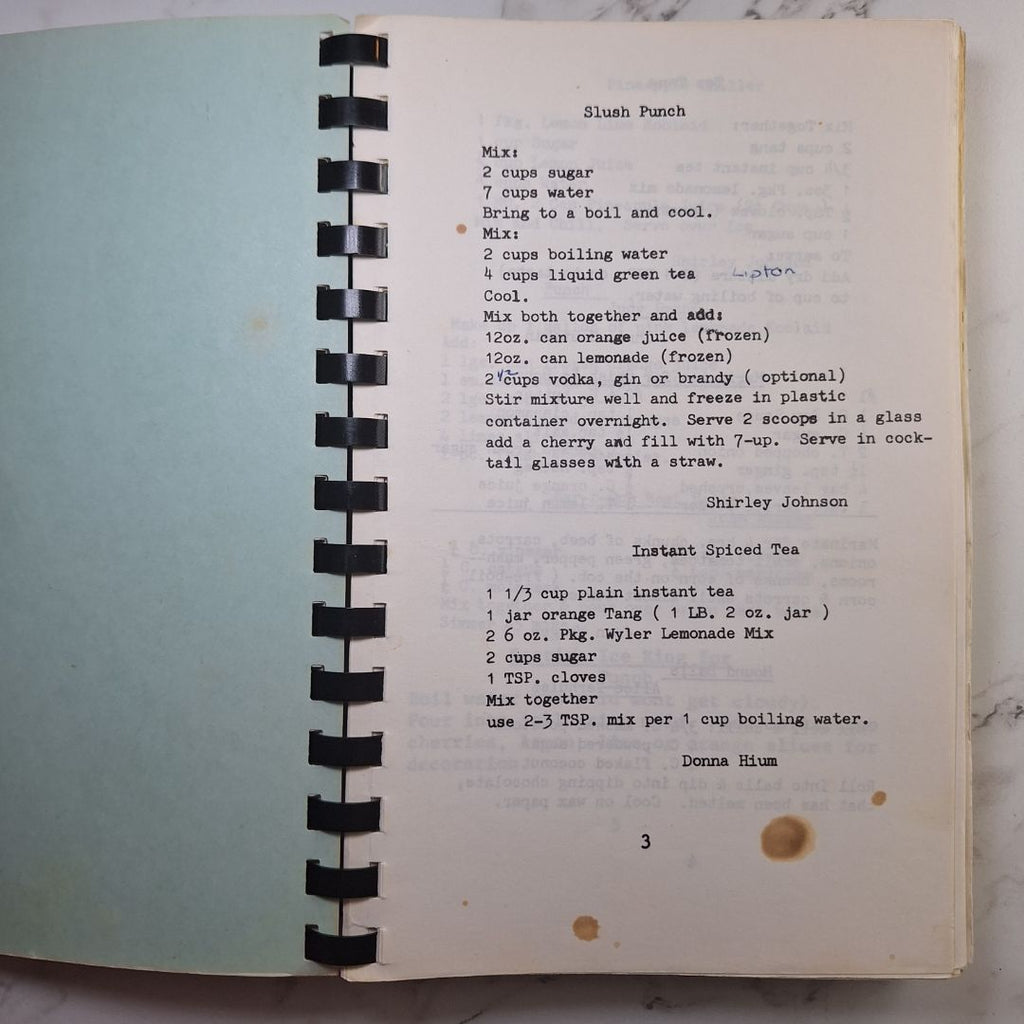 Slush Punch
Mix:
2 cups sugar
7 cups water
Bring to a boil and cool.
Mix:
2 cups boiling water
4 cups liquid green tea Lipton
Cool.
Mix both together and add:
12oz. can orange juice (frozen)
12oz. can lemonade (frozen)
2 1/2 cups vodka, gin or brandy ( optional)
Stir mixture well and freeze in plastic
container overnight. Serve 2 scoops in a glass
add a cherry and fill with 7-up. Serve in cock-
tail glasses with a straw.
Shirley Johnson
Instant Spiced Tea
1 1/3 cup plain instant tea
1 jar orange Tang ( 1 LB. 2 oz. jar )
2 6 oz. Pkg. Wyler Lemonade Mix
2 cups sugar
1 TSP. cloves
Mix together
use 2-3 TSP. mix per 1 cup boiling water.
Donna Hium
3